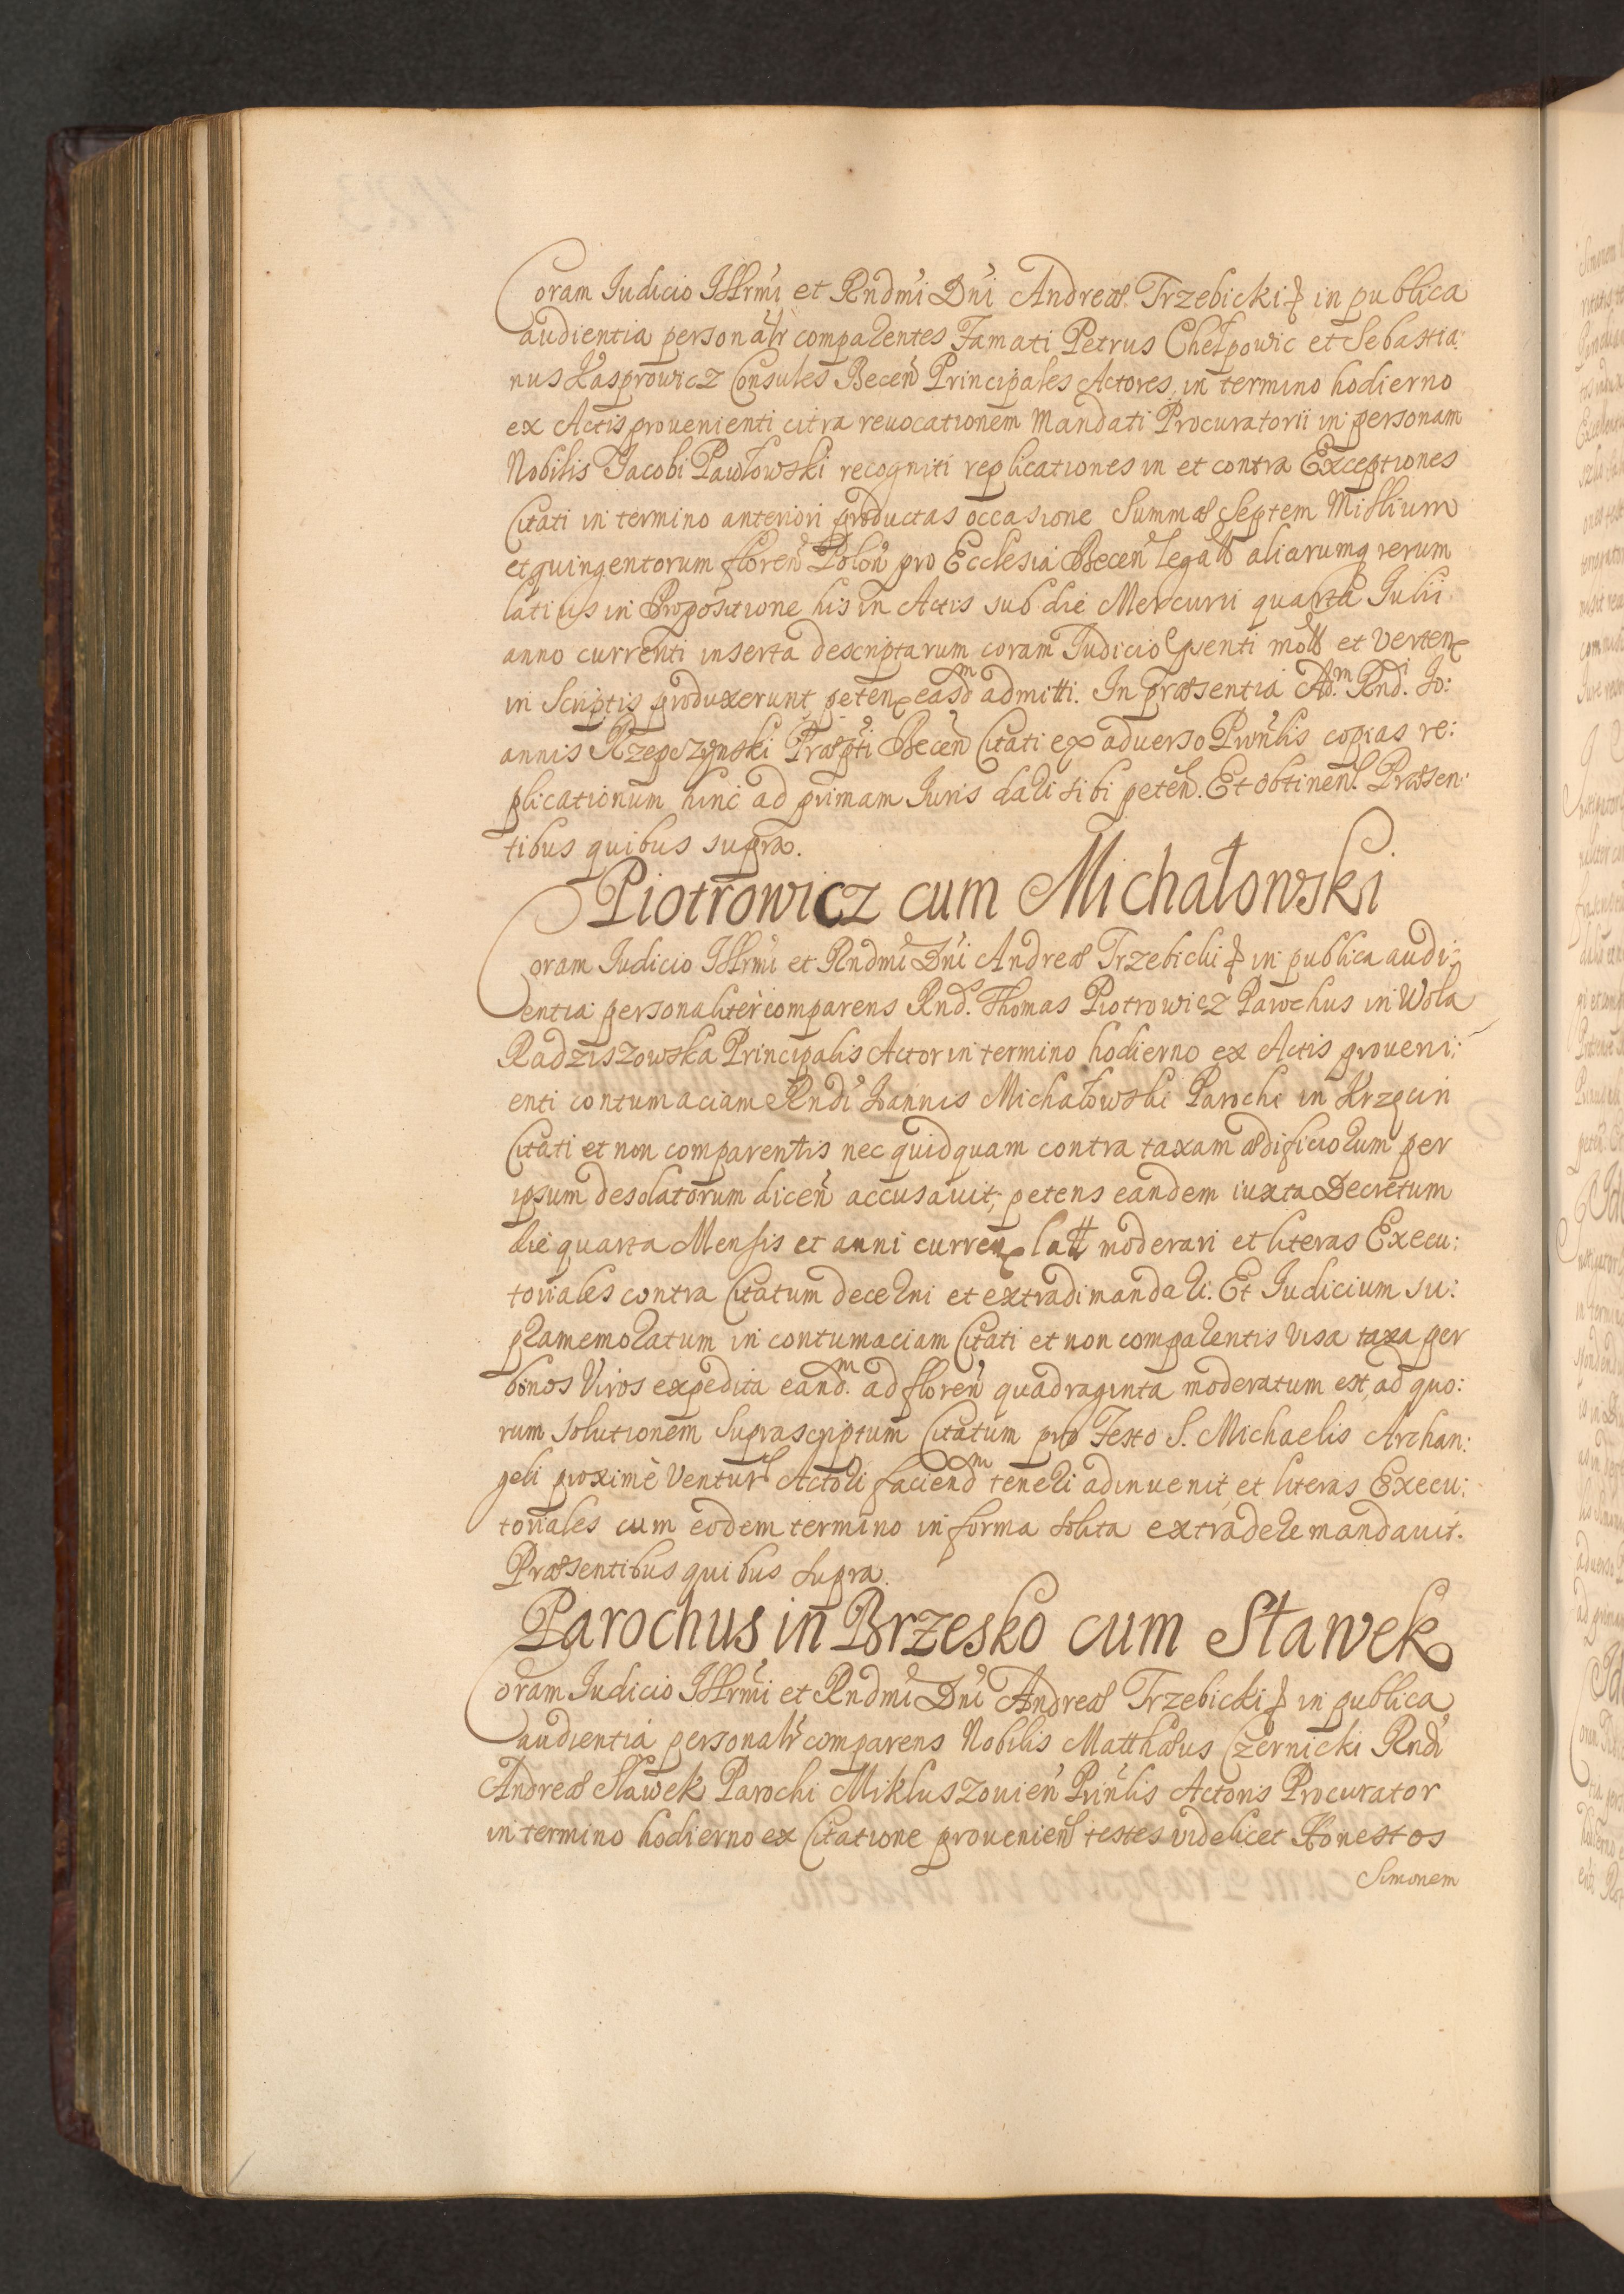 Coram Iudicio Illrmi et Rndmi Dni Andreæ Trzebicki in publica
audientia personalr comparentes Famati Petrus Chełpowic et Sebastia:
nus Kasprowicz Consules Becen Principales Actores in termino hodierno
ex Actis prouenienti citra reuocationem Mandati Procuratorii in personam
Nobilis Jacobi Pawłowski recogniti replicationes in et contra Exceptiones
Citati in termino anteriori productas occasione Summæ Septem Millium
et quingentorum floren Polon pro Ecclesia Becen legat aliarumq rerum
latius in Propositione his in Actis sub die Mercurii quarta Iulii
anno currenti inserta descriptarum coram Iudicio pnti et verten
in Scriptis produxerunt, peten easdm admitti. In præsentia Adm. Rndi. Jo:
annis Rzepczynski Præpti Becen Citati ex aduerso Prinlis copias re:
plicationum hinc ad primam Iuris dari sibi peten. Et obtinen. Præsen:
tibus quibus supra.
Piotrowicz cum Michałowski
Coram Iudicio Illrmi et Rndmi Dni Andreæ Trzebicki in publica audi:
entia personaliter comparens Rnd. Thomas Piotrowicz Parochus in Wola
Radziszowska Principalis Actor in termino hodierno ex Actis proueni:
enti contumaciam Rndi Joannis Michałowski Parochi in Krzęcin
Citati et non comparentis nec quidquam contra taxam ædificiorum per
ipsum desolatorum dicen accusauit, petens eandem iuxta Decretum
die quarta Mensis et anni curren latt moderari et literas Execu:
toriales contra Citatum decerni et extradi mandari. Et Iudicium su:
pramemoratum in contumaciam Citati et non comparentis visa taxa per
bonos Viros expedita eandm. ad floren quadraginta moderatum est, ad quo:
rum solutionem Suprascriptum Citatum pro Festo S. Michaelis Archan:
geli proximè Ventur Actori faciendm teneri adinuenit, et literas Execu:
toriales cum eodem termino in forma solita extradere mandauit.
Præsentibus quibus supra.
Parochus in Brzesko cum Sławek
Coram Iudicio Illrmi et Rndmi Dni Andreæ Trzebicki in publica
audientia personalr comparens Nobilis Matthæus Czernicki Rndi
Andreæ Sławek Parochi Mikluszouien Prinlis Actoris Procurator
in termino hodierno ex Citatione prouenien testes videlicet Honestos
Simonem